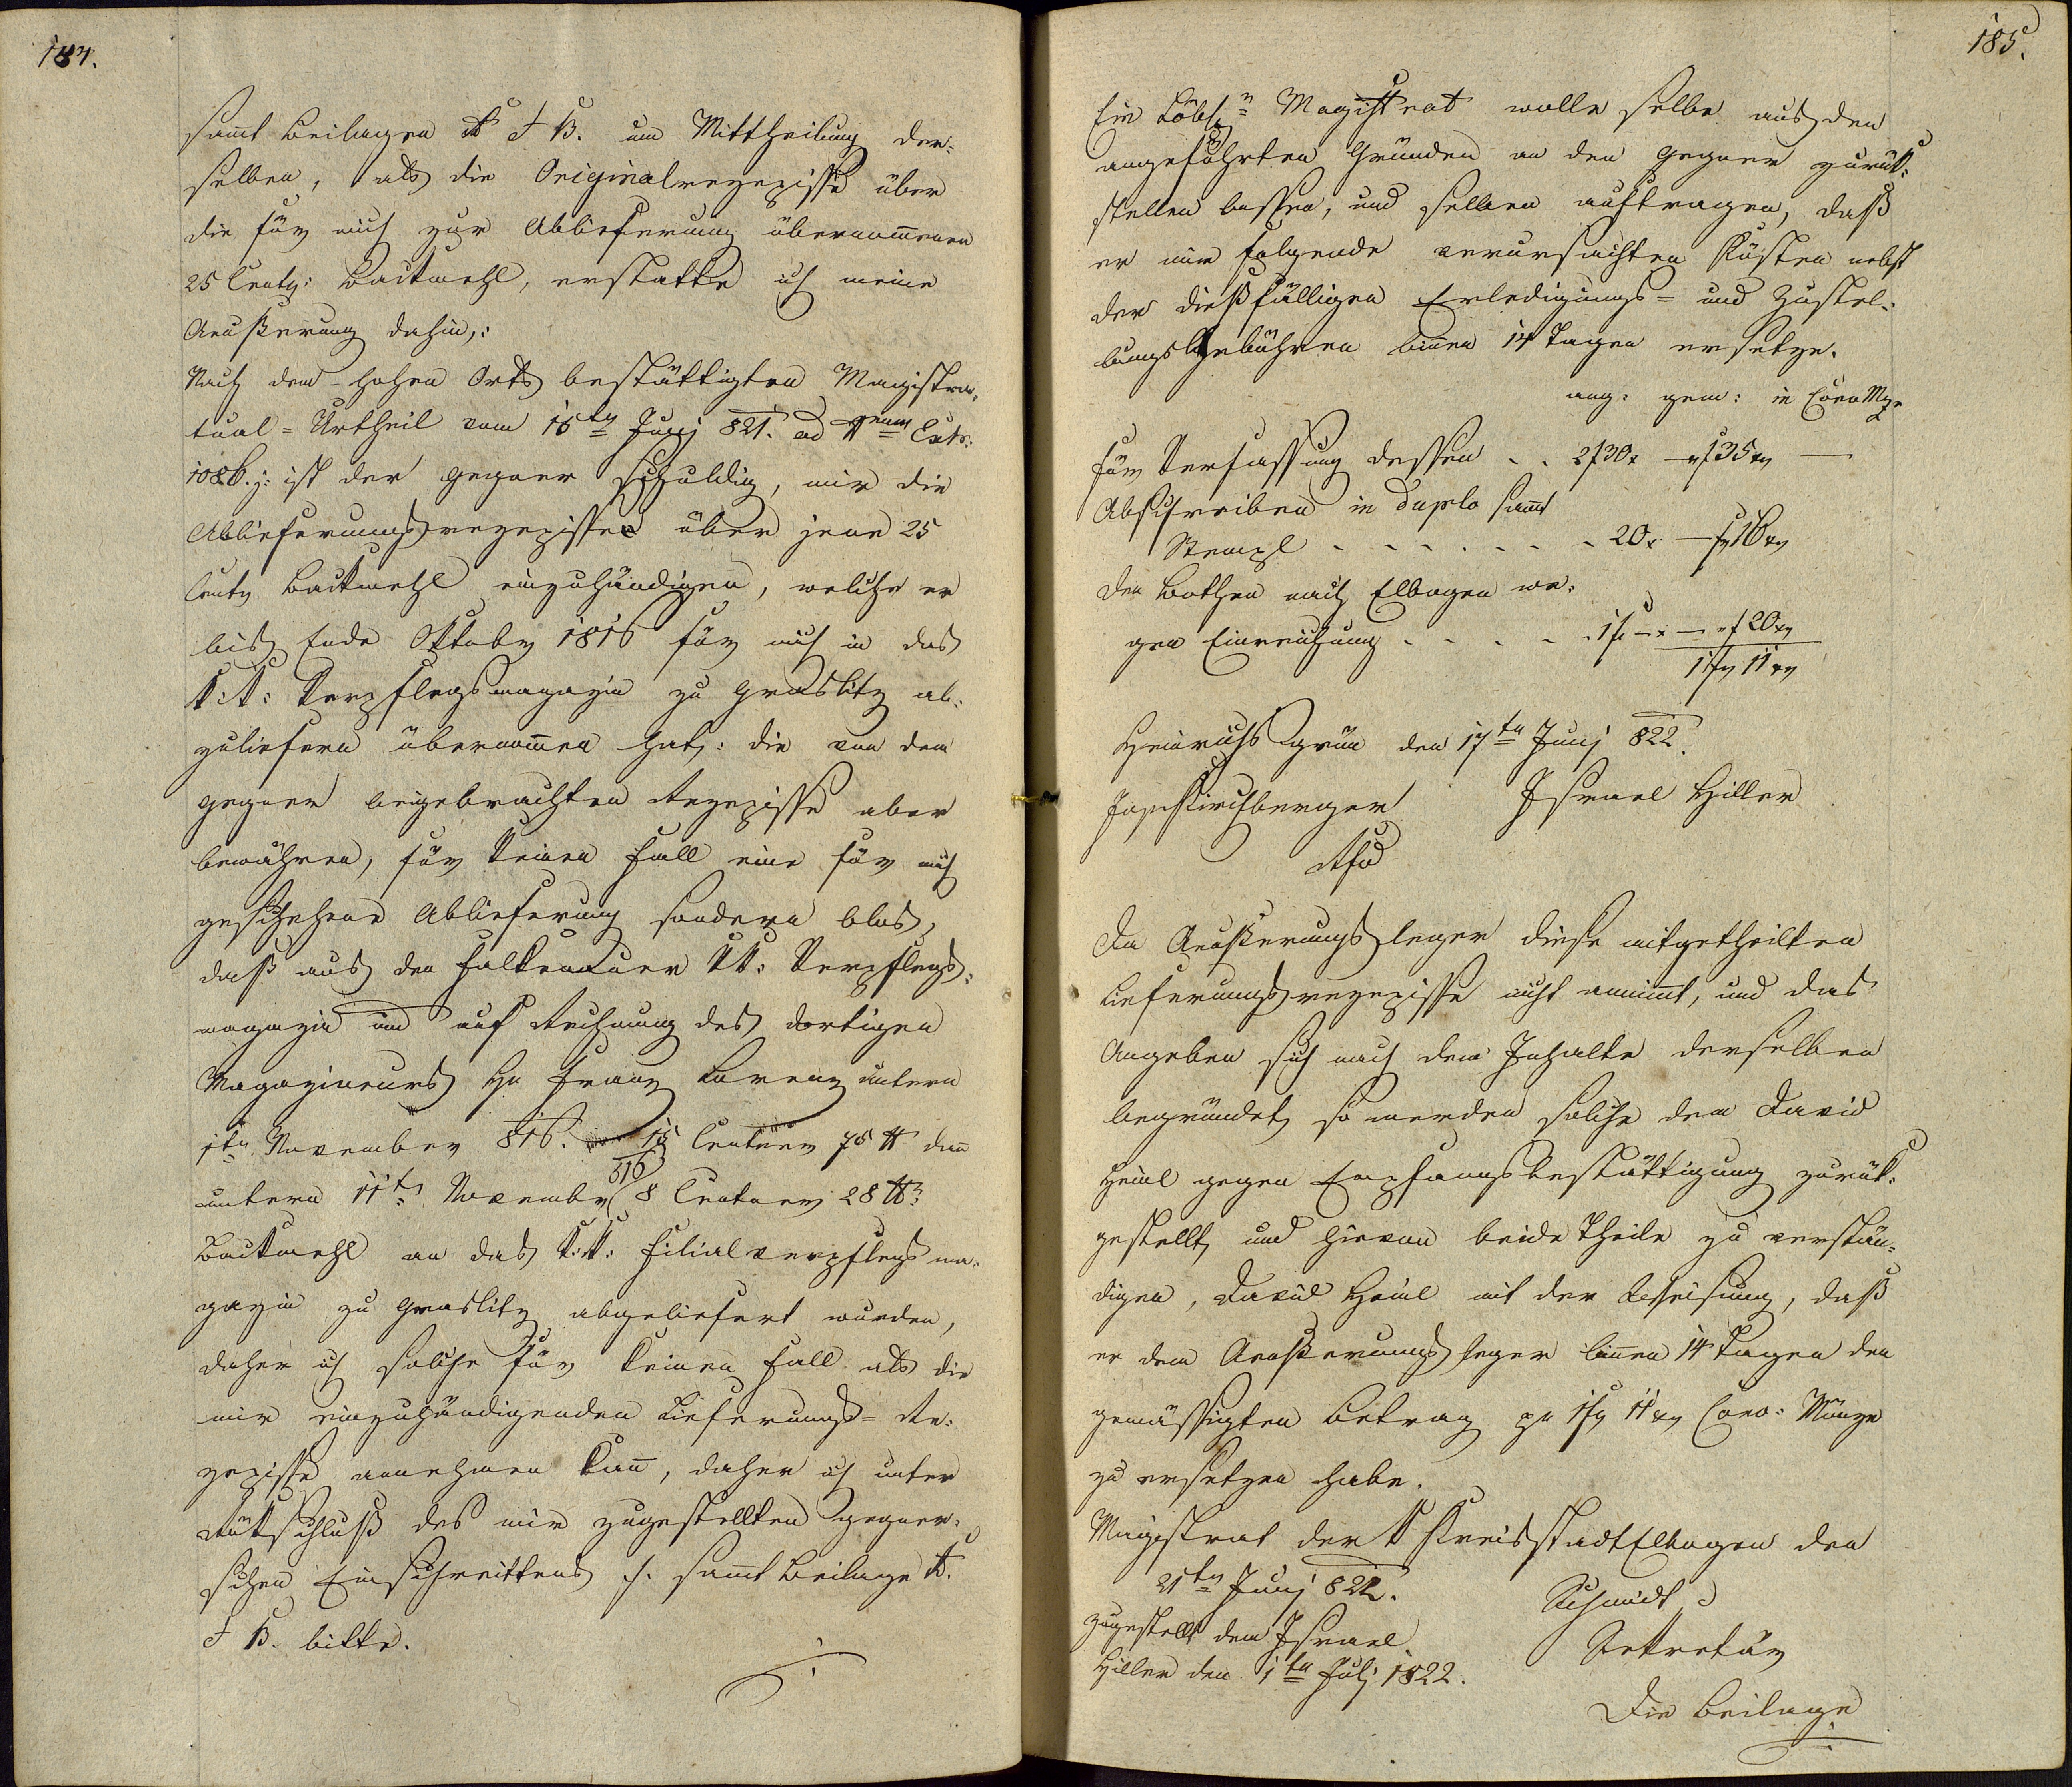 184.
samt Beilagen A & B. um Mittheilung der-
selben, als die Originalrezepisse über
die für mich zur Ablieferung übernommenen
25 Centr: Backmehl, erstatte ich meine
Aeußerung dahin:
Nach dem hohen Orts bestättigten Magistra-
tual-Urtheil vom 15ten Junj 821. ad Extr:
108 ist der Gegner schuldig, mir die
Ablieferungsrezepisse über jene 25
Centr Backmehl einzuhändigen, welche er
bis Ende Oktober 1816 für mich in das
K: K: Verpflegsmagazin zu Graslitz ab-
zuliefern übernommen hat: die von dem
Gegner beigebrachten Rezepisse aber
bewähren, für keinen Fall eine für mich
geschehene Ablieferung sondern blos,
daß aus den Falkenauer KK: Verpflegs-
magazin und auf Rechnung des dortigen
Magazineurs Hn Franz Lorenz untern
1ten November 816. 15 Centner 75 ℔ dan
untern 11t November 816 8 Centner 28 ℔
Backmehl an das K: K: Filialverpflegsma-
gazin zu Graslitz abgeliefert wurden,
daher ich solche für keinen Fall als die
mir einzuhändigenden Lieferungs-Re-
zepisse annehmen kann, daher ich unter
Rückschluß des mir zugestellten gegner-
schen Einschreittens /. samt Beilage A.
& B. bitte.
185.
Ein Löbl: Magistrat wolle selbe aus den
angeführten Gründen an den Gegner zurük-
stellen lassen, und selben auftragen, daß
er mir folgende verursachten Kösten nebst
der dießfälligen Erledigungs- und Zustel-
lungsgebühren binnen 14 Tagen ersetze.
ang: gem: in Conv Mze
für Verfassung dessen . . 2f 30x — f 35 xr —
Abschreiben in Duplo samt
Stempl . . . . . . . 20x — f 16 xr
den Bothen nach Elbogen we-
gen Einreichung . . . . . 1f — x — f 20 xr
1 fr 11 xr
Heinrichsgrün den 17ten Junj 822.
Kirchberger Israel Hiller
Da Aeußerungsleger diese mitgetheilten
Lieferungsrezepisse nicht annimt, und das
Angeben sich nach dem Inhalte derselben
begründet, so werden solche dem David
Heinl gegen Empfangsbestättigung zurük-
gestellt, und hievon beide Theile zu verstän-
digen, David Heinl mit der Anweisung, daß
er dem Aeußerungsleger binnen 14 Tagen den
gemässigten Betrag pr 1 fr 11 xr Conv: Münze
zu ersetzen habe.
Magistrat der K Kreisstadt Elbogen den
21ten Junj 822.
Schmidt
Sekretär
zugestellt dem Israel
Hiller den 1ten Julj 1822.
Die Beilage